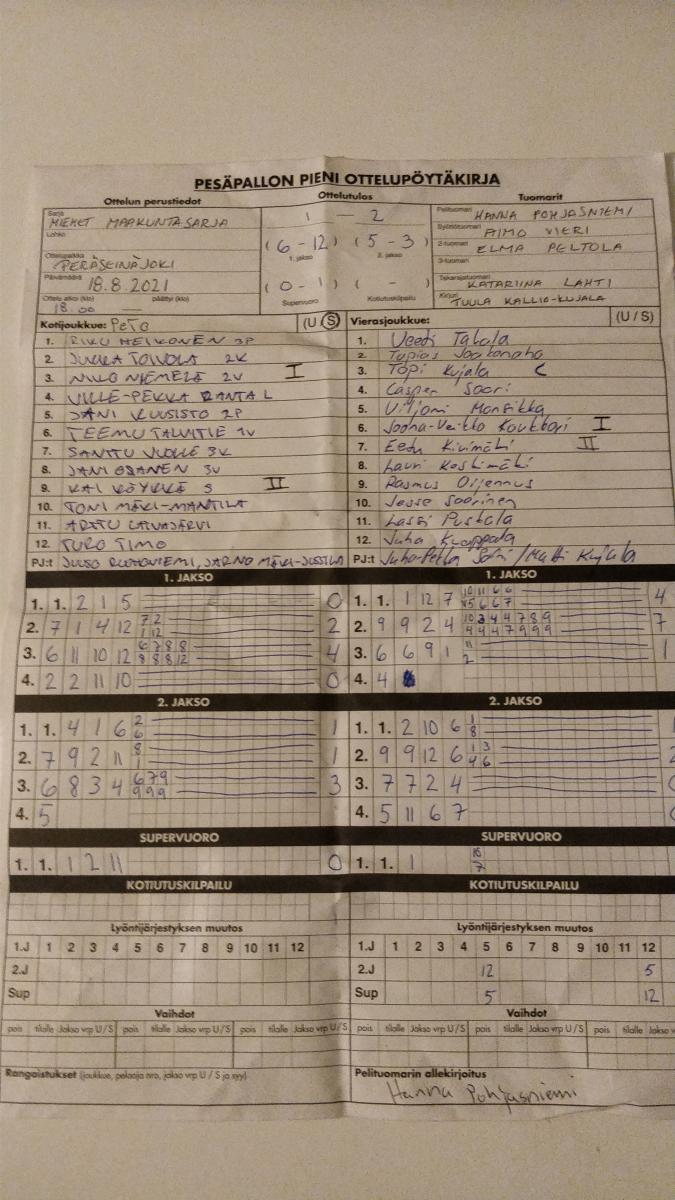 PESÄPALLON PIENI OTTELUPÖYTÄKIRJA
Ottelun perustiedot Ottelutulos Tuomarit
Sarja MIEHET MAAKUNTASARJA 1 — 2 Pelituomari HANNA POHJASNIEMI
Lohko (6 - 12) (5 - 3) Syöttötuomari AIMO VIERI
1. jakso 2. jakso 2-tuomari ELMA PELTOLA
Ottelupaikka PERÄSEINÄJOKI 3-tuomari
Päivämäärä 18.8.2021 (0 - 1) ( - ) Takarajatuomari KATARIINA LAHTI
Ottelu alkoi (klo) päättyi (klo) Supervuoro Kotiutuskilpailu Kirjuri TUULA KALLIO-KUJALA
18.00 —
Kotijoukkue: PeTo (U/S) Vierasjoukkue: (U / S)
1. RIKU HEIKONEN 3P 1. Veeti Takala
2. JUKKA TOIVOLA 2K 2.
3. NIILO NIEMELÄ 2V I 3. Topi Kujala
4. VILLE-PEKKA RANTA L 4. Casper Saari
5. JANI KUUSISTO 2P 5. Viljami
6. TEEMU TALVITIE 1V 6. Juha-Veikko I
7. SANTTU 3K 7. Eetu Kivimäki II
8. JANI 3V 8. Lauri Keskimäki
9. KAI KÖYKKÄ S II 9. Rasmus Oijennus
10. TONI MÄKI-MANTILA 10. Jesse Saarinen
11. ARTTU LAIVAJÄRVI 11. Lassi Pustala
12. TURO TIMO 12. Juha
PJ:t JUUSO RUOHONIEMI, JARNO MÄKI-JUSSILA PJ:t Juha-Pekka / Matti Kujala
1. JAKSO 1. JAKSO
1. 1. 2 1 5 0 1. 1. 1 12 7 10 11 6 6 4
5 6 6 7
2. 7 1 4 12 7 2 2 2. 9 9 2 4 10 3 4 4 7 8 9 7
1 12 4 4 4 7 9 9 9
3. 6 11 10 12 6 7 8 8 4 3. 6 6 9 1 11 1
8 8 8 12 2
4. 2 2 11 10 0 4. 4
2. JAKSO 2. JAKSO
1. 1. 4 1 6 2 1 1. 1. 2 10 6 1 1
6 8
2. 7 9 2 11 8 1 2. 9 9 12 6 1 3 2
1 4 6
3. 6 8 3 4 6 7 9 3 3. 7 7 2 4 0
9 9 9
4. 5 4. 5 11 6 7 0
SUPERVUORO SUPERVUORO
1. 1. 1 2 11 0 1. 1. 1
7
KOTIUTUSKILPAILU KOTIUTUSKILPAILU
Lyöntijärjestyksen muutos Lyöntijärjestyksen muutos
1.J 1 2 3 4 5 6 7 8 9 10 11 12 1.J 1 2 3 4 5 6 7 8 9 10 11 12
2.J 2.J 12 5
Sup Sup 5 12
Vaihdot Vaihdot
pois tilalle Jakso vrp U/S pois tilalle Jakso vrp U/S pois tilalle Jakso vrp U/S pois tilalle Jakso vrp U/S pois tilalle Jakso vrp U/S pois tilalle Jakso v
Rangaistukset (joukkue, pelaaja nro, jakso vrp U / S ja syy) Pelituomarin allekirjoitus
Hanna Pohjasniemi